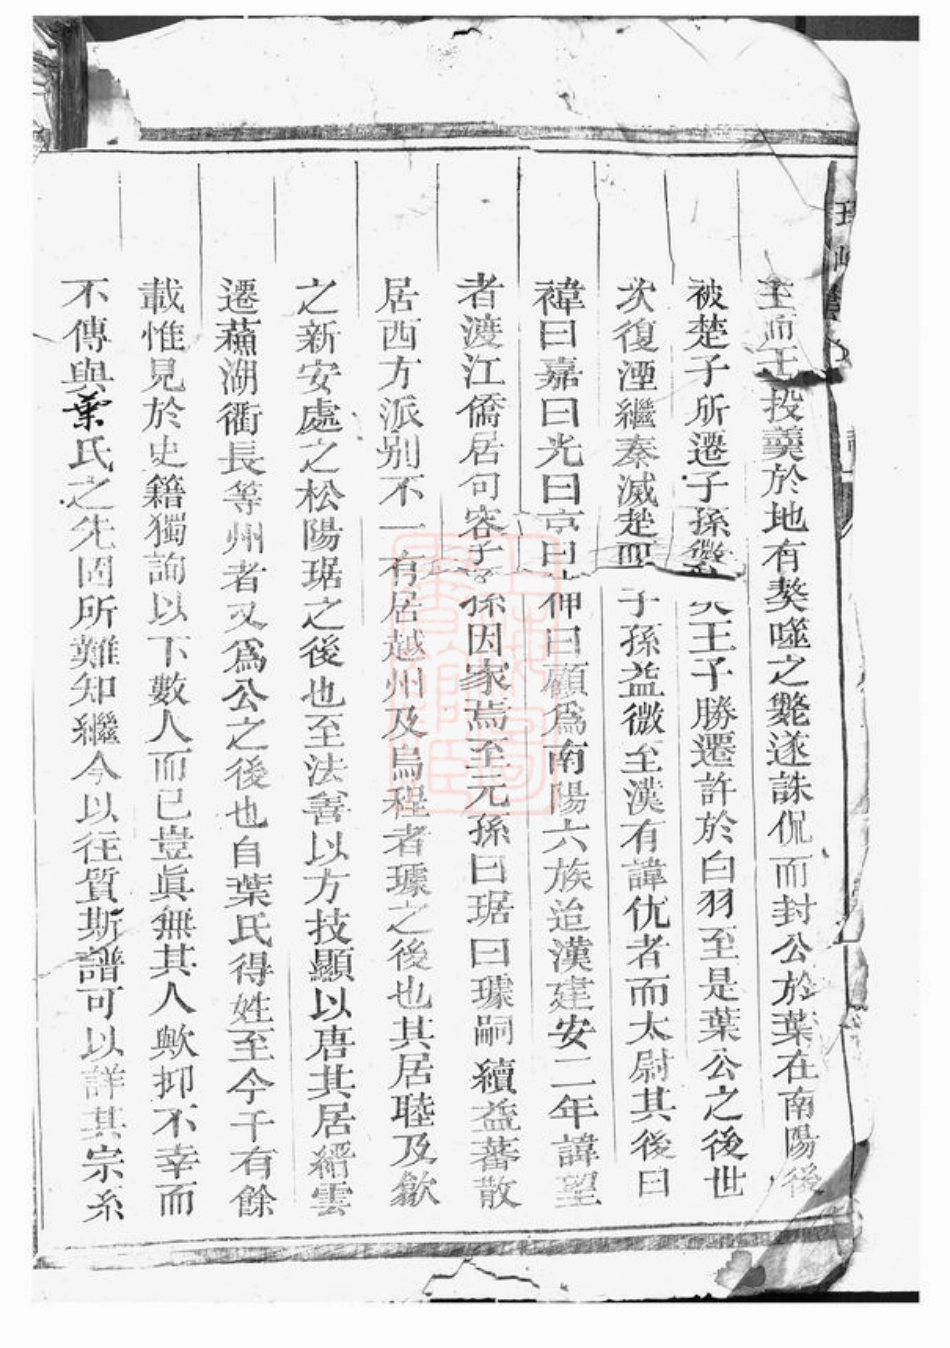 至而王投羹於地有獒噬之斃遂誅侃而封公於葉在南陽後
被楚子所遷子孫微 王子勝遷許於白羽至是葉公之後世
次復湮繼秦滅楚 子孫益微至漢有諱伉者而太尉其後曰
禕曰嘉曰光曰京曰 曰顧爲南陽六族迨漢建安二年諱望
者渡江僑居句容子孫因家焉至元孫曰琚曰㻿嗣續益蕃散
居西方派别不一有居越州及烏程者㻿之後也其居睦及歙
之新安處之松陽琚之後也至法善以方技顯以唐其居縉雲
遷蘓湖衢長等州者又爲公之後也自葉氏得姓至今千有餘
載惟見於史籍獨詢以下數人而已豈眞無其人歟抑不幸而
不傳與葉氏之先固所難知繼今以往質斯譜可以詳其宗系